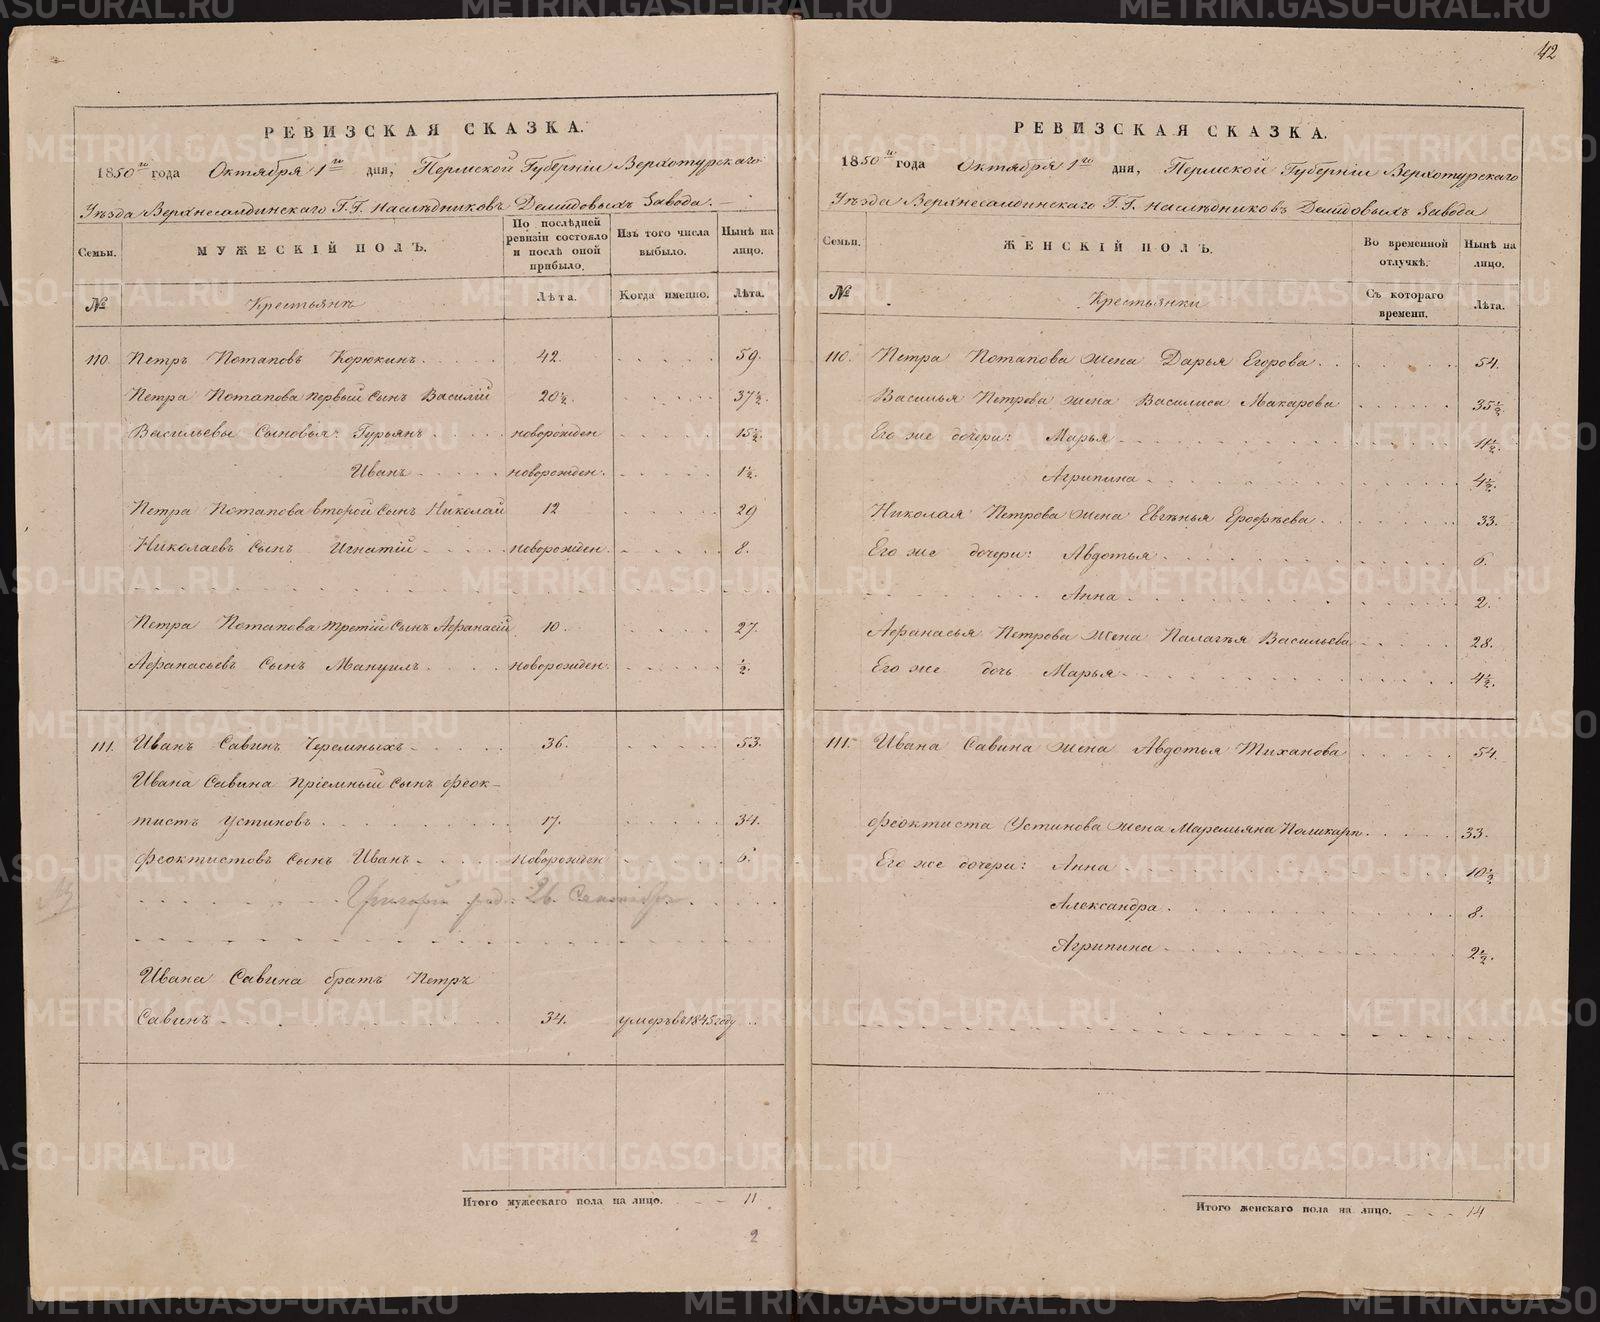 42
РЕВИЗСКАЯ СКАЗКА.
1850го года Октября 1го дня, Пермской Губерніи Верхотурскаго
Уѣзда Верхнесалдинскаго Г.Г. Наслѣдниковъ Демидовыхъ Завода.
Семьи.
МУЖЕСКІЙ ПОЛЪ.
По послѣдней ревизіи состояло и послѣ оной прибыло.
Изъ того числа выбыло.
Нынѣ на лицо.
№
Крестьянъ
Лѣта.
Когда именно.
Лѣта.
110. Петръ Потаповъ Корюкинъ 42. 59.
Петра Потапова первый сынъ Василій 20½. 37½.
Васильевы сыновья: Гурьянъ новорожден 15½.
Иванъ новорожден. 1½.
Петра Потапова второй сынъ Николай 12 29
Николаевъ сынъ Игнатій новорожден. 8.
Петра Потапова третій сынъ Афанасій 10. 27.
Афанасьевъ сынъ Мануилъ новорожден. ½.
111. Иванъ Савинъ Черемныхъ 36. 53.
Ивана Савина пріемный сынъ Феок-
тистъ Устиновъ 17. 34.
Феоктистовъ сынъ Иванъ новорожден 6.
Григорій род. 26. Сентября
Ивана Савина братъ Петръ
Савинъ 34. умеръ въ 1845 году
Итого мужескаго пола на лицо. 11
2
РЕВИЗСКАЯ СКАЗКА.
1850го года Октября 1го дня, Пермской Губерніи Верхотурскаго
Уѣзда Верхнесалдинскаго Г.Г. Наслѣдниковъ Демидовыхъ Завода
Семьи.
ЖЕНСКІЙ ПОЛЪ.
Во временной отлучкѣ.
Нынѣ на лицо.
№
Крестьянки
Съ котораго времени.
Лѣта.
110. Петра Потапова жена Дарья Егорова 54.
Василья Петрова жена Василиса Макарова 35½
Его же дочери: Марья 11½.
Агрипина 4½.
Николая Петрова жена Евгѣнья Ерофѣева 33.
Его же дочери: Авдотья 6.
Анна 2.
Афанасья Петрова жена Палагѣя Васильева 28.
Его же дочь Марья 4½.
111. Ивана Савина жена Авдотья Тиханова 54.
Феоктиста Устинова жена Маремьяна Поликарп. 33.
Его же дочери: Анна 10½
Александра 8.
Агрипина 2½.
Итого женскаго пола на лицо. 14
METRIKI.GASO-URAL.RU